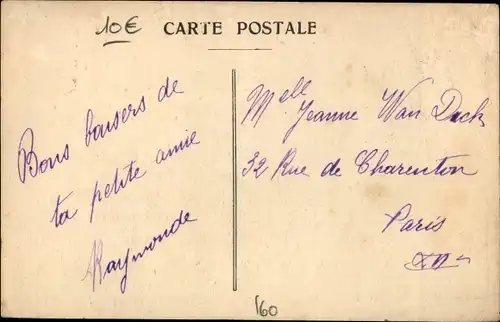 10€
CARTE POSTALE
Bons baisers de
ta petite amie
Raymonde
Melle Jeanne Wan Duck
32 Rue de Charenton
Paris
160